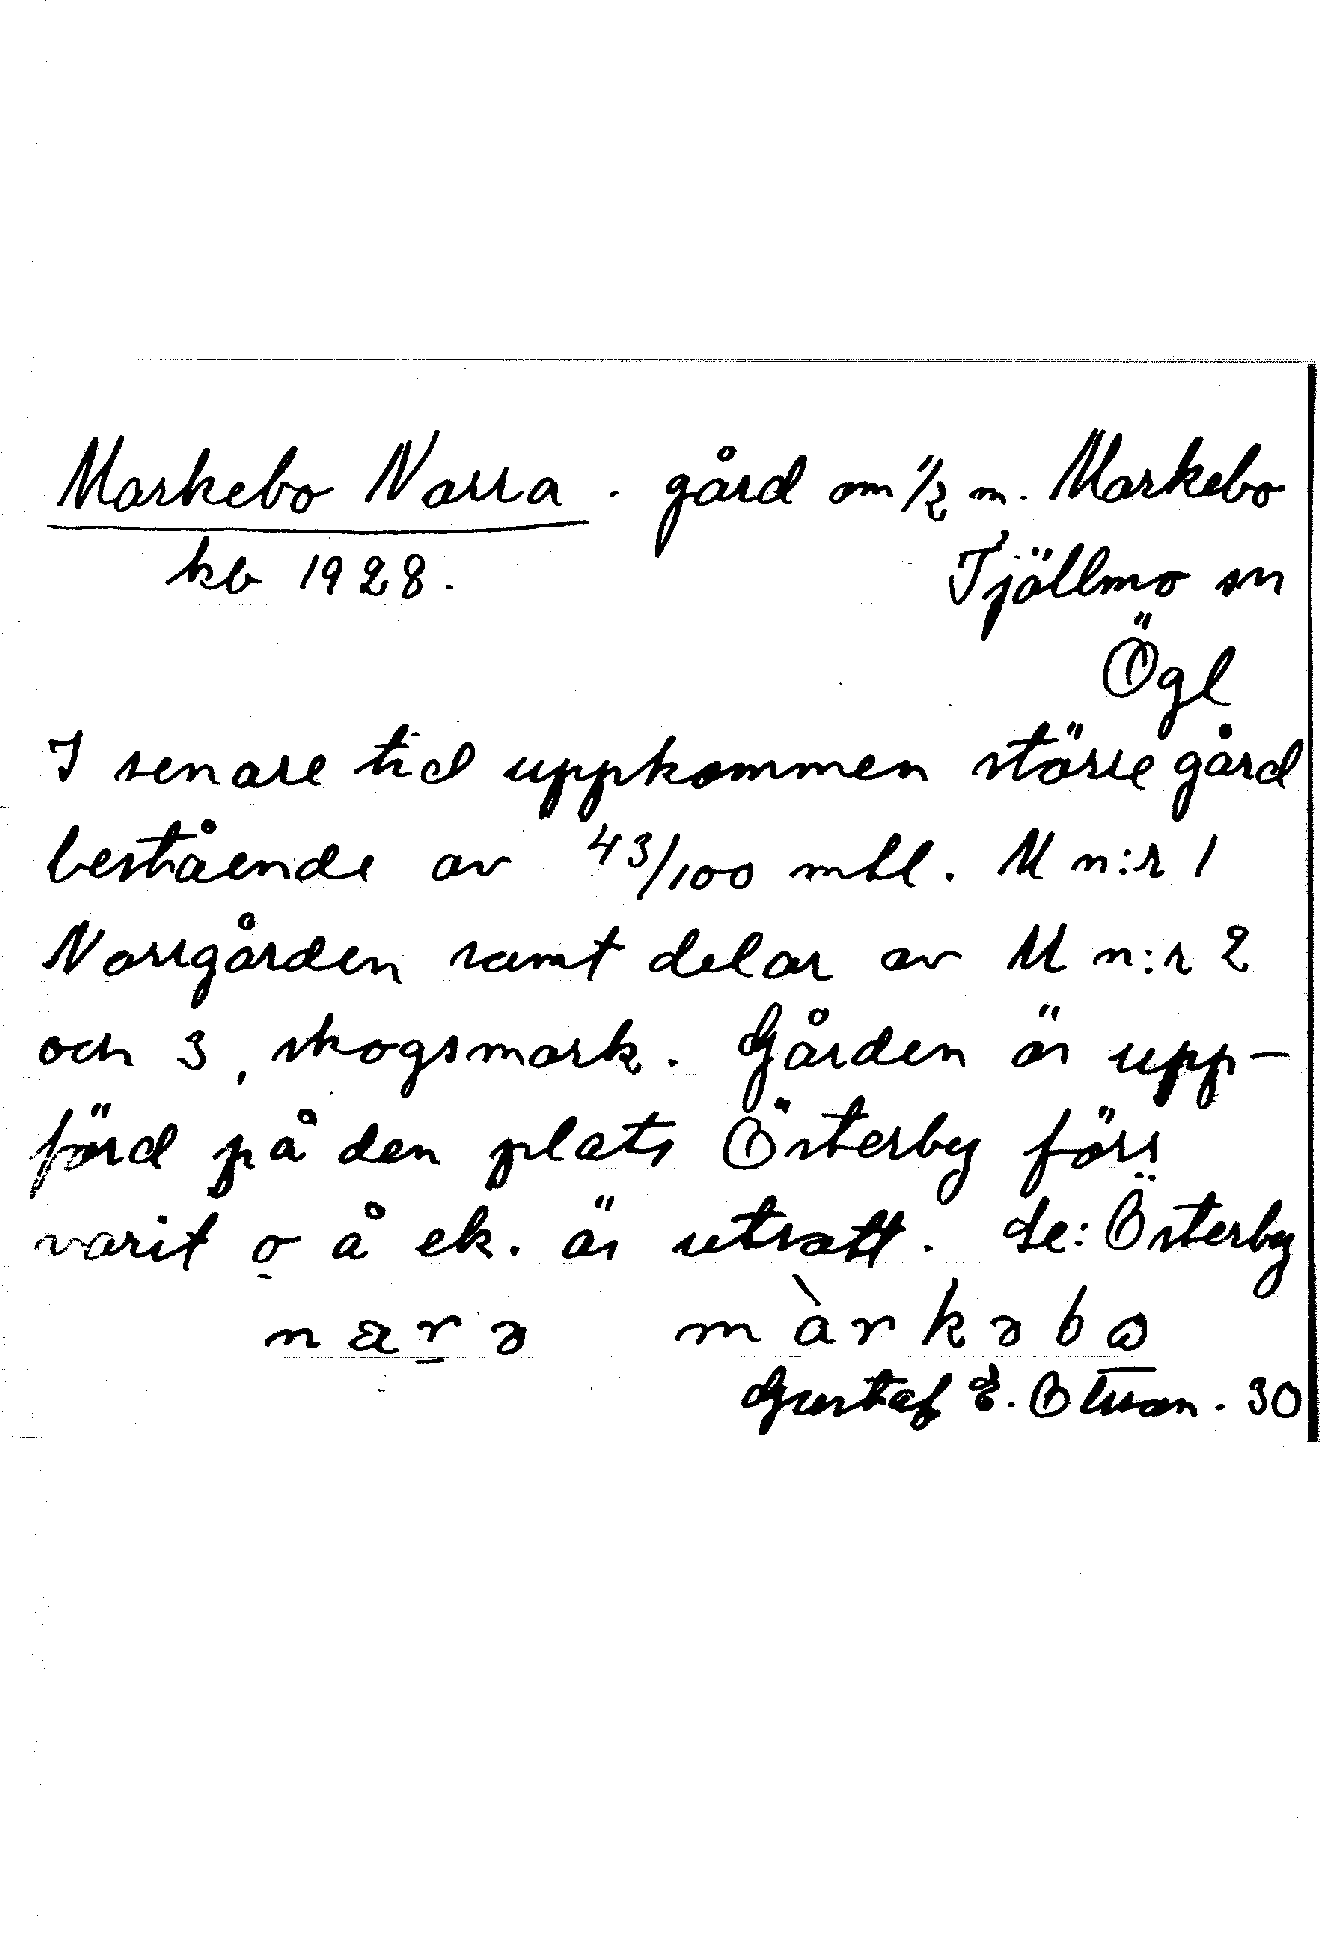 Markebo Norra . gård om 1/2 m. Markebo
kb 1928. Tjällmo sn
Ögl
I senare tid uppkommen större gård
bestående av 43/100 mtl. M n:r 1
Norrgården samt delar av M n:r 2
och 3, skogsmark. Gården är upp-
förd på den plats Österby förr
varit o å ek. är utsatt. Se: Österby
nærə màrkəbo
Gustaf E. Ottson. 30